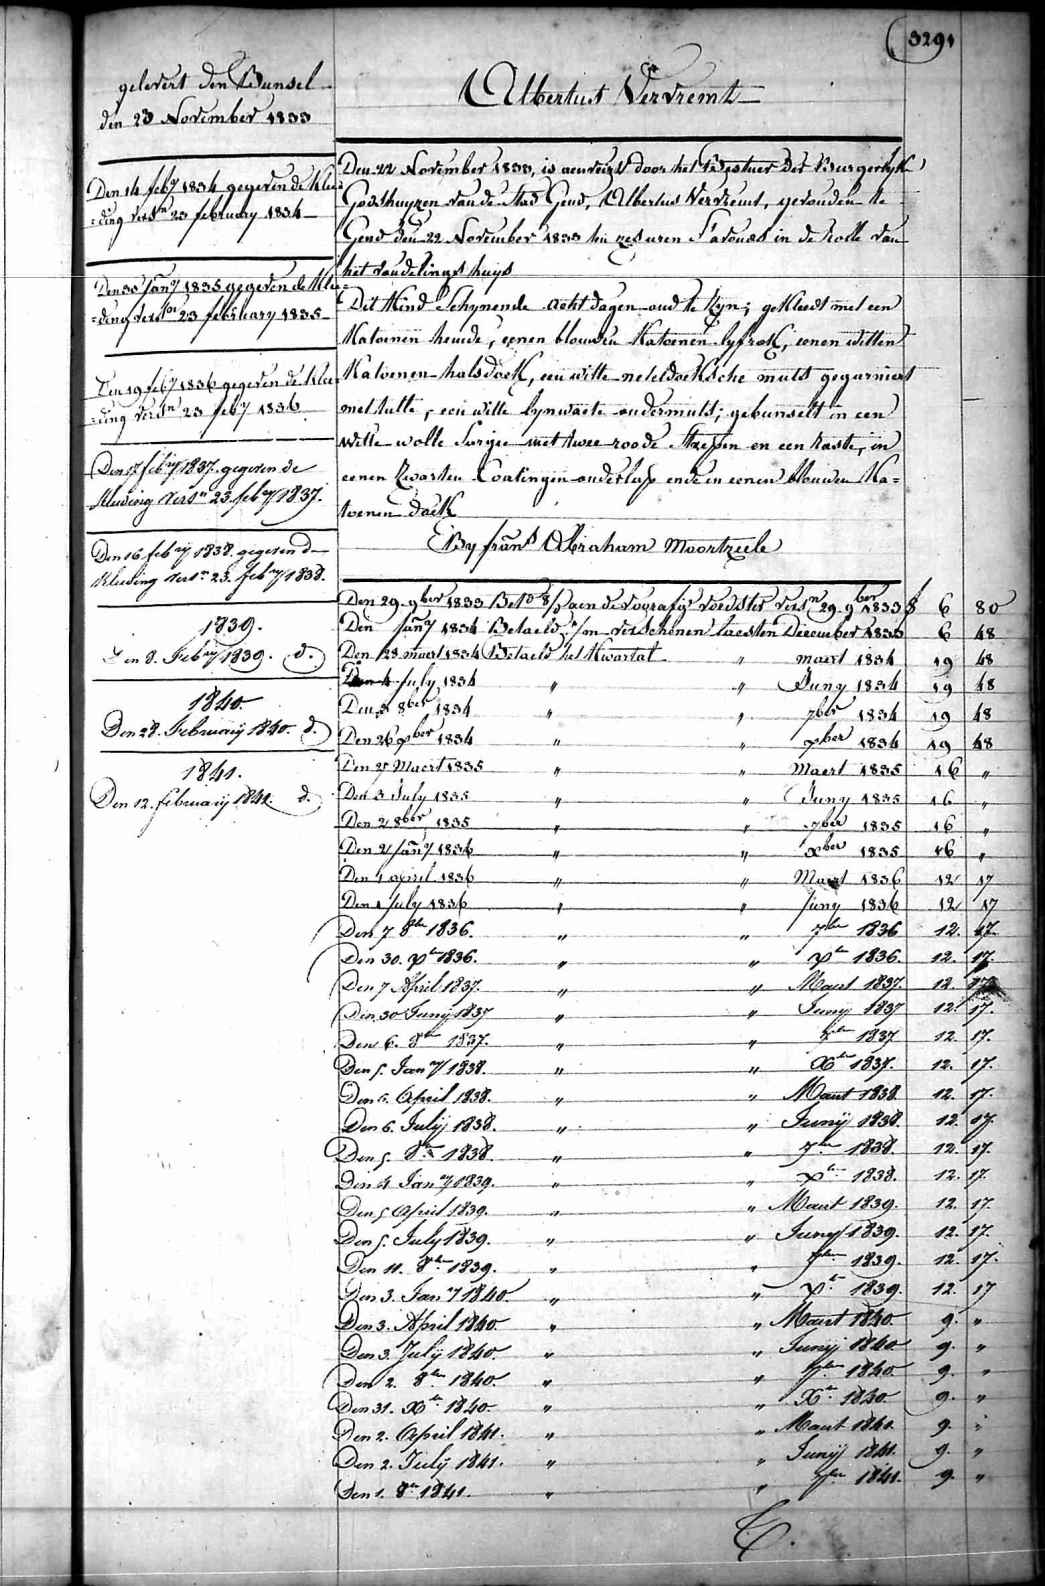 3291
gelevert den Bunsel
den 23 November 1833
Den 14 feby 1834 gegeven de Klee=
=ding versn 23 february 1834
Den 30 Jany 1835 gegeven de Klee=
=ding versn 23 february 1835
Den 19 feby 1836 gegeven de Klee=
=ding versn 23 feby 1836
Den 17 feby 1837. gegeven de
Kleeding versn 23. feby 1837.
Den 16 feby 1838. gegeven de
Kleeding versn 23. feby 1838.
1839.
Den 8. Feby 1839. d.
1840.
Den 28. February 1840. d.
1841.
Den 12. february 1841. d.
Albertus Vervremt
Den 22 November 1833, is aenveird door het Bestuer der Burgerlyke
Godshuyzen van de Stad Gend, Albertus Vervremt, gevonden te
Gend den 22 November 1833 ten zes uren s'avonds in de rolle van
het vondelingshuys
Dit Kind Schynende acht dagen oud te zyn; gekleed met een
Katoenen hemde, eenen blouwen Katoenen lyfrok, eenen witten
Katoenen halsdoek, een witte neteldoeksche muts gegarniert
met tulle, een witte lynwaete ondermuts; gebunselt in een
witte wolle Sargie met twee roode streepen en een kaste, in
eenen zwarten Coatingen onderlap ende in eenen blouwen Ka=
toenen doek
By frans Abraham Moortzeele
Den 29. 9ber 1833 Betd aen de voorafge voedster versn 29. 9ber 1833 f 6 80
Den Jany 1834 Betaeld verschenen laesten December 1833 6 48
Den 28 maert 1834 Betaeld het Kwartal " maert 1834 19 48
Den 4 July 1834 " " Juny 1834 19 48
Den 3 8ber 1834 " " 7ber 1834 19 48
Den 26 xber 1834 " " xber 1834 19 48
Den 27 Maert 1835 " " Maert 1835 16 "
Den 3 July 1835 " " Juny 1835 16 "
Den 2 8ber 1835 " " 7ber 1835 16 "
Den 2 Jany 1836 " " xber 1835 16 "
Den 1 april 1836 " " Maert 1836 12 17
Den 1 July 1836 " " Juny 1836 12 17
Den 7 8ber 1836. " " 7ber 1836 12. 17.
Den 30. xber 1836. " " xber 1836. 12. 17.
Den 7 April 1837. " " Maert 1837. 12. 17
Den 30 Junij 1837 " " Junij 1837 12. 17.
Den 6. 8ber 1837. " " 7ber 1837 12. 17.
Den 5. Jany 1838. " " Xber 1837. 12. 17.
Den 6. April 1838. " " Maert 1838. 12. 17.
Den 6. Julij 1838. " " Junij 1838. 12. 17.
Den 5. 8ber 1838. " " 7ber 1838. 12. 17.
Den 4. Jany 1839. " " xber 1838. 12. 17.
Den 5 April 1839. " " Maert 1839. 12. 17.
Den 5. July 1839. " " Juny 1839. 12. 17.
Den 11. 8ber 1839. " " 7ber 1839. 12. 17.
Den 3. Jany 1840. " " xber 1839. 12. 17
Den 3. April 1840. " " Maert 1840. 9. "
Den 3. July 1840. " " Junij 1840. 9. "
Den 2. 8ber 1840. " " 7ber 1840. 9. "
Den 31. Xber 1840. " " Xber 1840. 9. "
Den 2. April 1841. " " Maert 1841. 9. "
Den 2. July 1841. " " Junij 1841. 9. "
Den 1. 8ber 1841. " " 7ber 1841. 9. "